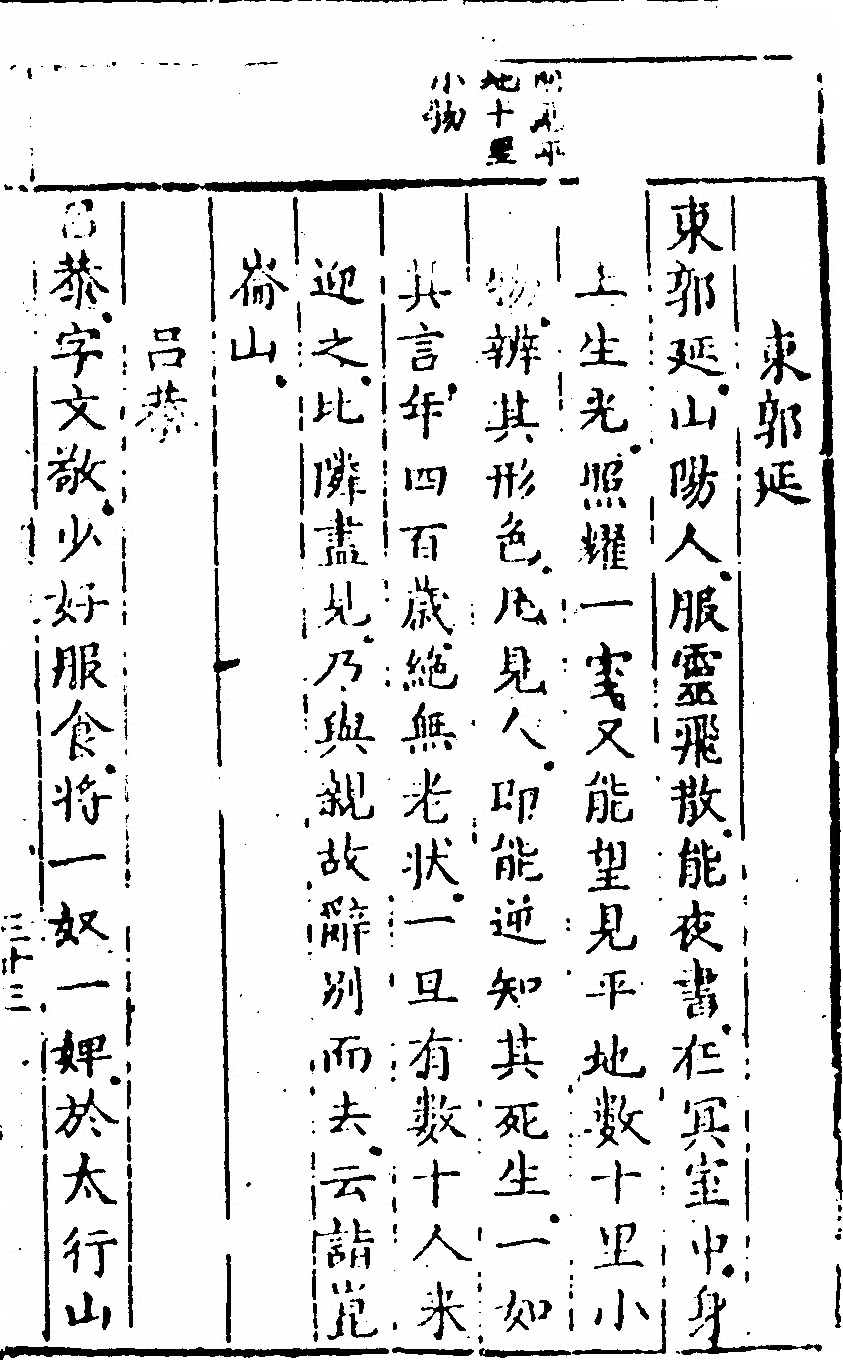 東郭延
東郭延山陽人服靈飛散能夜書在冥室中身
上生光照耀一室又能望見平地數十里小
物辨其形色凡見人即能逆知其死生一如
其言年四百歲絕無老狀一旦有數十人來
迎之比隣盡見乃與親故辭別而去云詣崑
崙山
呂恭
呂恭字文敬少好服食將一奴一婢於太行山
三十三
見平
地十里
小物